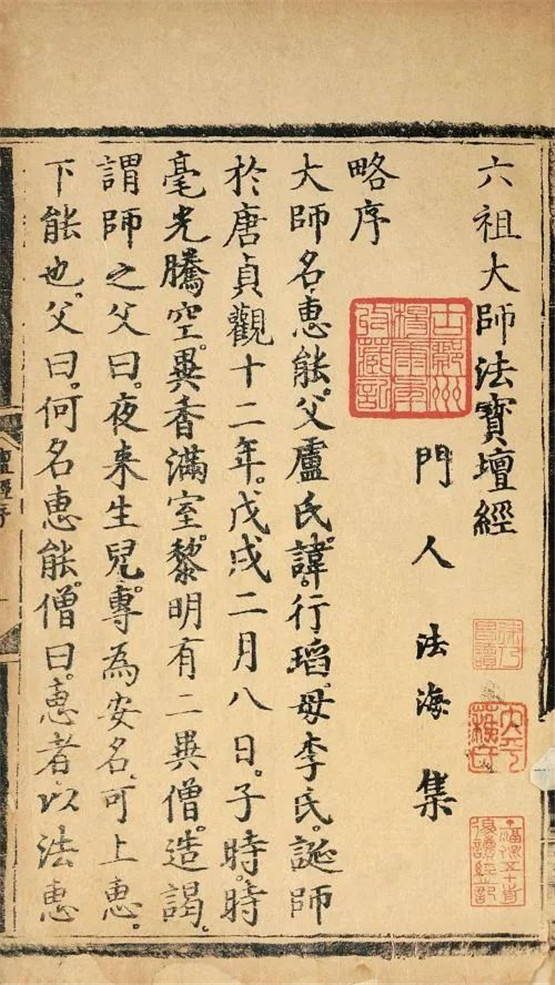 六祖大師法寶壇經
門人法海集
略序
大師名惠能。父盧氏。諱行瑫。母李氏。誕師
於唐貞觀十二年。戊戌二月八日。子時。時
毫光騰空。異香滿室。黎明有二異僧。造謁。
謂師之父曰。夜來生兒。專為安名。可上惠。
下能也。父曰。何名惠能。僧曰。惠者以法惠
壇經序